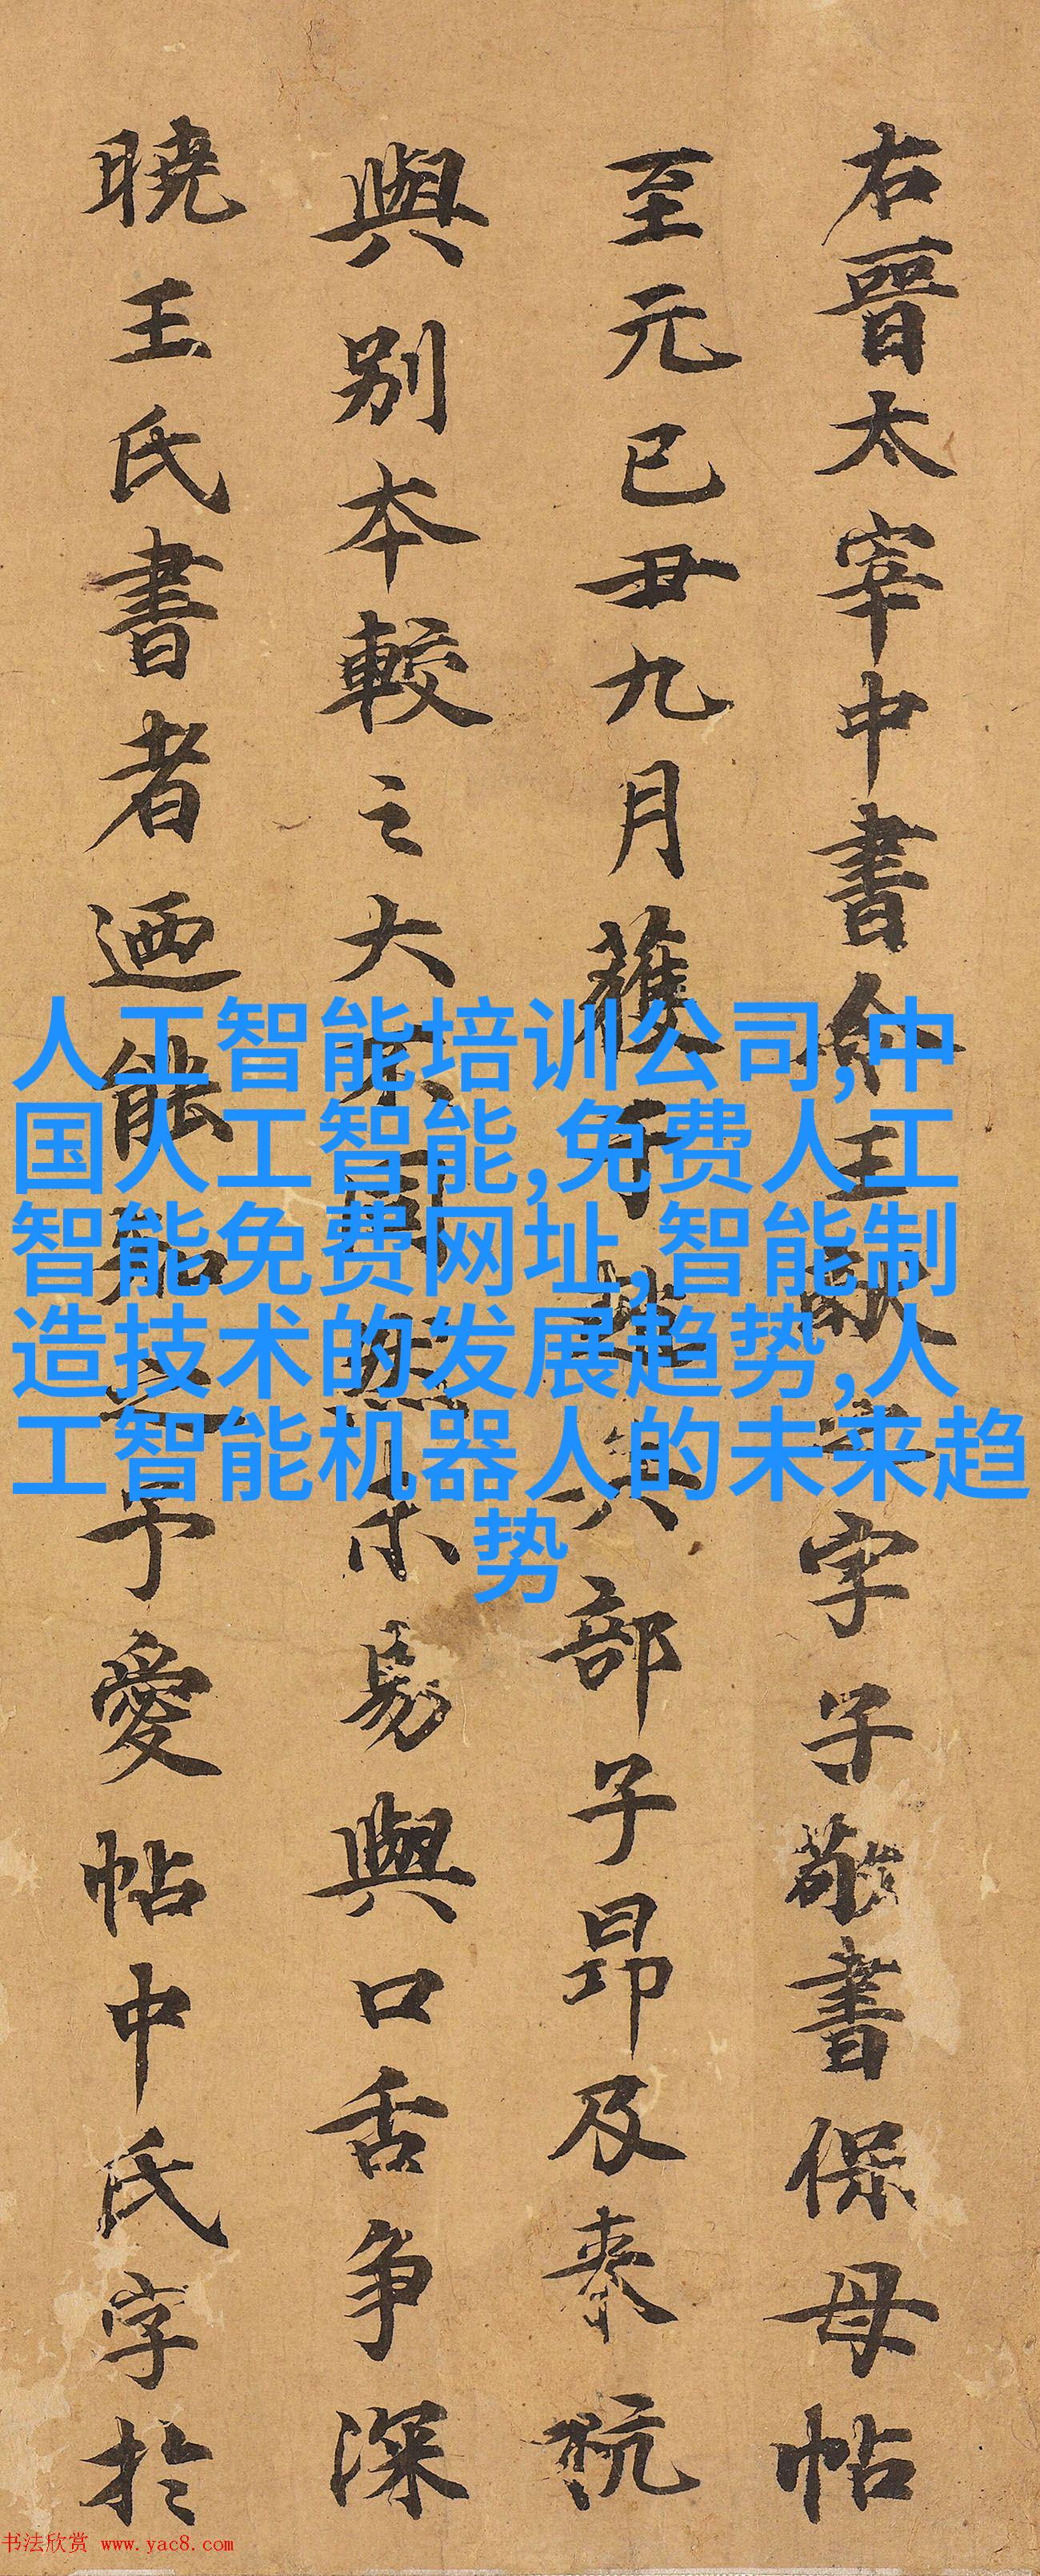 右晉太宰中書令王獻之字子敬書保母帖
至元己丑九月獲部子昂及
與别本較之大不同然未易與口舌争深
曉王氏書者迺能知之予愛帖中氏字於
人工智能培训公司,中
国人工智能,免费人工
智能免费网址,智能制
造技术的发展趋势,人
工智能机器人的未来趋
势
书法欣赏 www.yac8.com